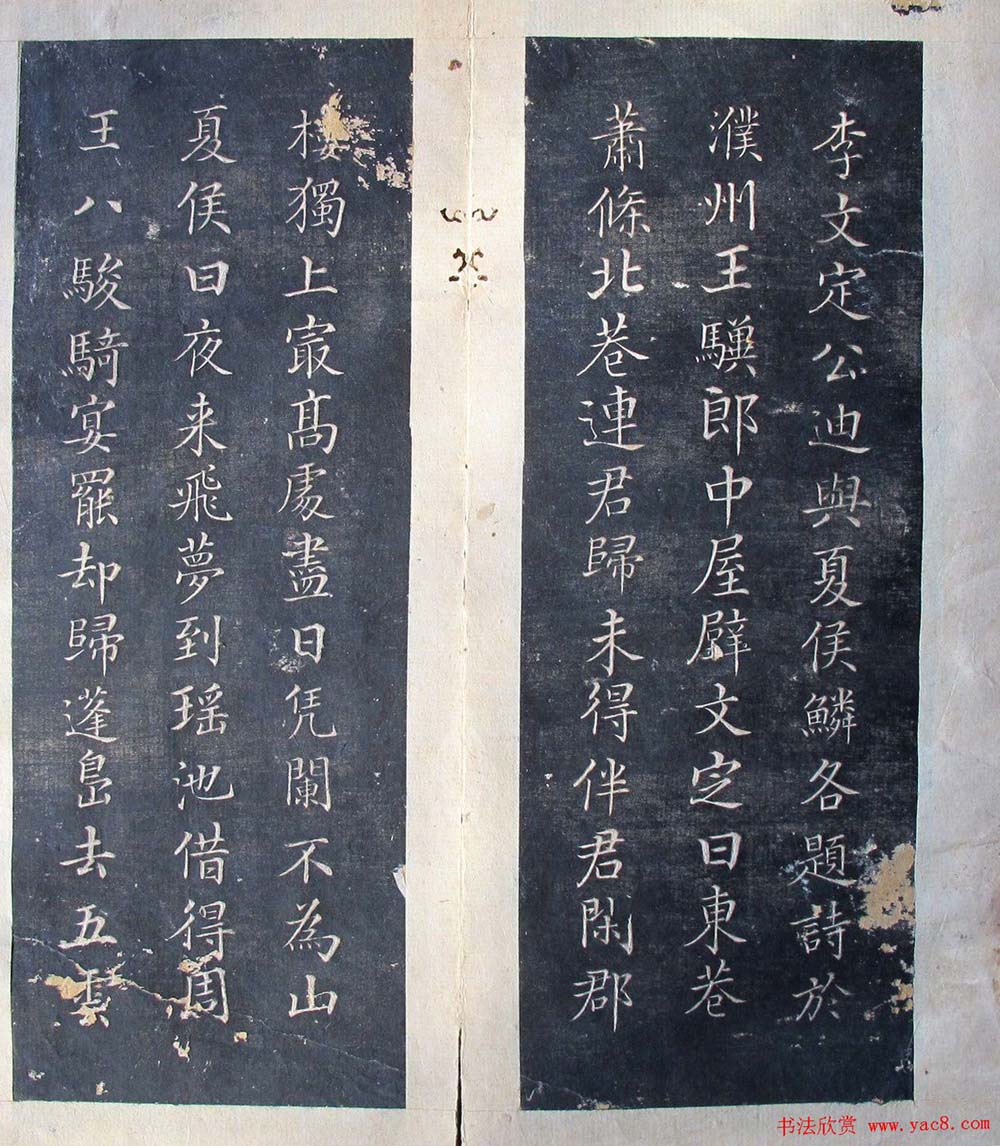 李文定公迪與夏侯鱗各題詩於
濮州王驥郎中屋壁文定曰東巷
蕭條北巷連君歸未得伴君閑郡
樓獨上寂高處盡日凭闌不為山
夏侯曰夜来飛夢到瑶池借得周
王八駿騎宴罷却歸蓬島去五雲
书法欣赏 www.yac8.com